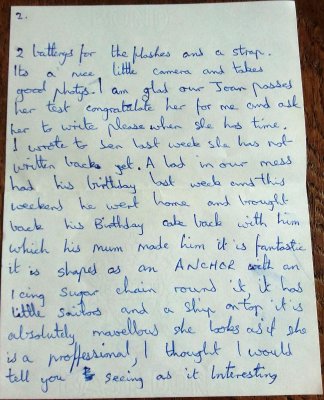 2.
2 batterys for the flashes and a strap.
Its a nice little camera and takes
good photys. I am glad our Joan passes
her test congratulate her for me and ask
her to write please when she has time.
I wrote to  last week she has not
written back yet. A lad in our mess
had his birthday last week and this
weekend he went home and brought
back his Birthday cake back with him
which his mum made him it is fantastic
it is shapes as an ANCHOR with an
icing sugar chain round it it has
little sailors and a ship ontop it is
absolutely mavellous she looks as if she
is a proffessional, I thought I would
tell you seeing as it Interesting